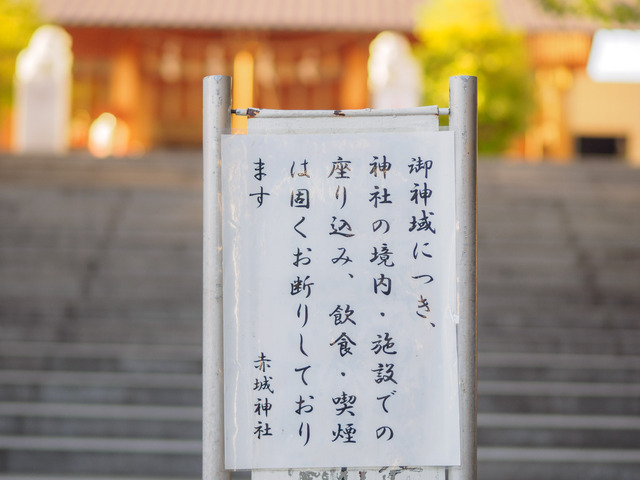 御神域につき、
神社の境内・施設での
座り込み、飲食・喫煙
は固くお断りしており
ます
赤城神社